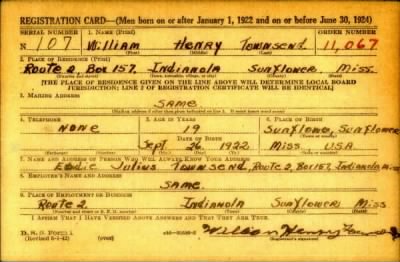 REGISTRATION CARD—(Men born on or after January 1, 1922 and on or before June 30, 1924)
SERIAL NUMBER 1. NAME (Print) ORDER NUMBER
N 107 William Henry Townsend 11,067
2. PLACE OF RESIDENCE (Print)
Route 2, Box 157, Indianola Sunflower Miss.
[THE PLACE OF RESIDENCE GIVEN ON THE LINE ABOVE WILL DETERMINE LOCAL BOARD
JURISDICTION; LINE 2 OF REGISTRATION CERTIFICATE WILL BE IDENTICAL]
3. MAILING ADDRESS
SAME
4. TELEPHONE 5. AGE IN YEARS 6. PLACE OF BIRTH
NONE 19 Sunflower, Sunflower
DATE OF BIRTH
Sept 26 1922 Miss USA
7. NAME AND ADDRESS OF PERSON WHO WILL ALWAYS KNOW YOUR ADDRESS
Julius Townsend, Route 2, Box 157, Indianola Miss
8. EMPLOYER'S NAME AND ADDRESS
SAME
9. PLACE OF EMPLOYMENT OR BUSINESS
Route 2. Indianola Sunflower Miss
I AFFIRM THAT I HAVE VERIFIED ABOVE ANSWERS AND THAT THEY ARE TRUE.
D. S. S. Form 1
(Revised 6-1-42)
William Henry Townsend